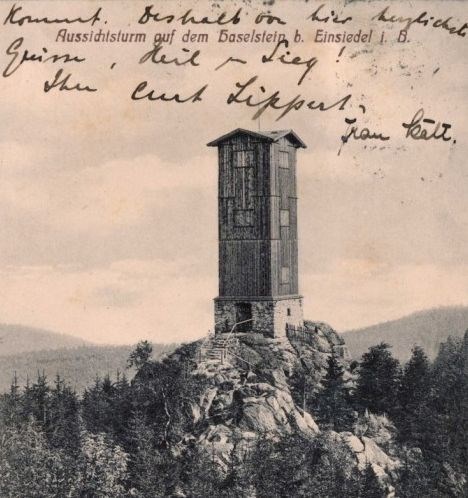 Kommt. Deshalb von hier herzlichste
Aussichtsturm auf dem Haselstein b. Einsiedel i. B.
Grüsse, Heil u Sieg!
Ihr Curt Lippert.
Frau Kält.